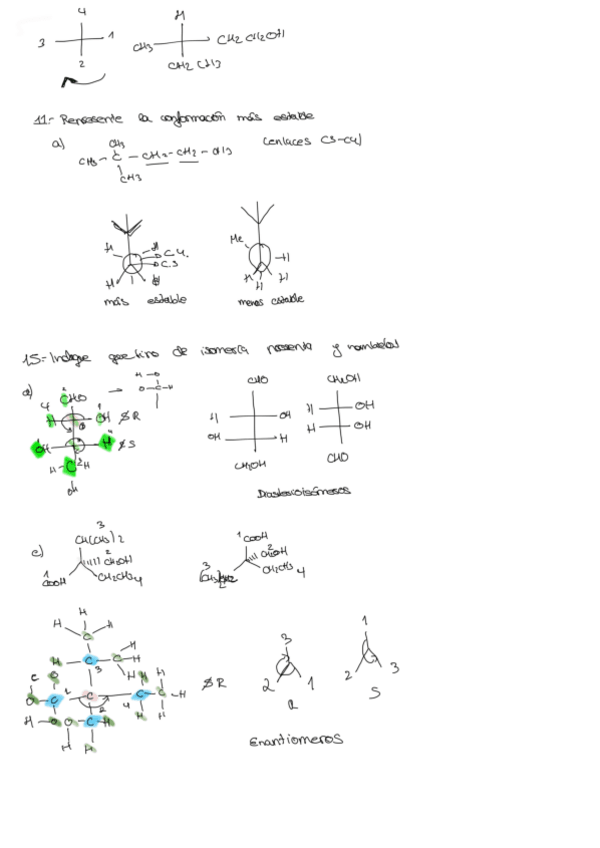 4
3 1
2
H
CH3 CH2CH2OH
CH2CH3
11.- Represente la conformación más estable
a) CH3 (enlaces C3-C4)
CH3-C-CH2-CH2-CH3
CH3
H H C4
C3
H
más estable
Me
H
H H H
menos estable
15.- Indique que tipo de isomería presenta y nombrelos
a) CHO
4
H OH R
OH H S
H-C-H
OH
H-O
O-C-H
CHO
H OH
OH H
CH2OH
CH2OH
H OH
H OH
CHO
Diastereoisómeros
c) 3
CH(CH3)2
2
CH2OH
1
COOH CH2CH3 4
1 COOH
2
CH2OH
3
CH2CH3 4
H
H C H
H C C H
3
R
3
2 1
R
1
2 3
S
Enantiomeros